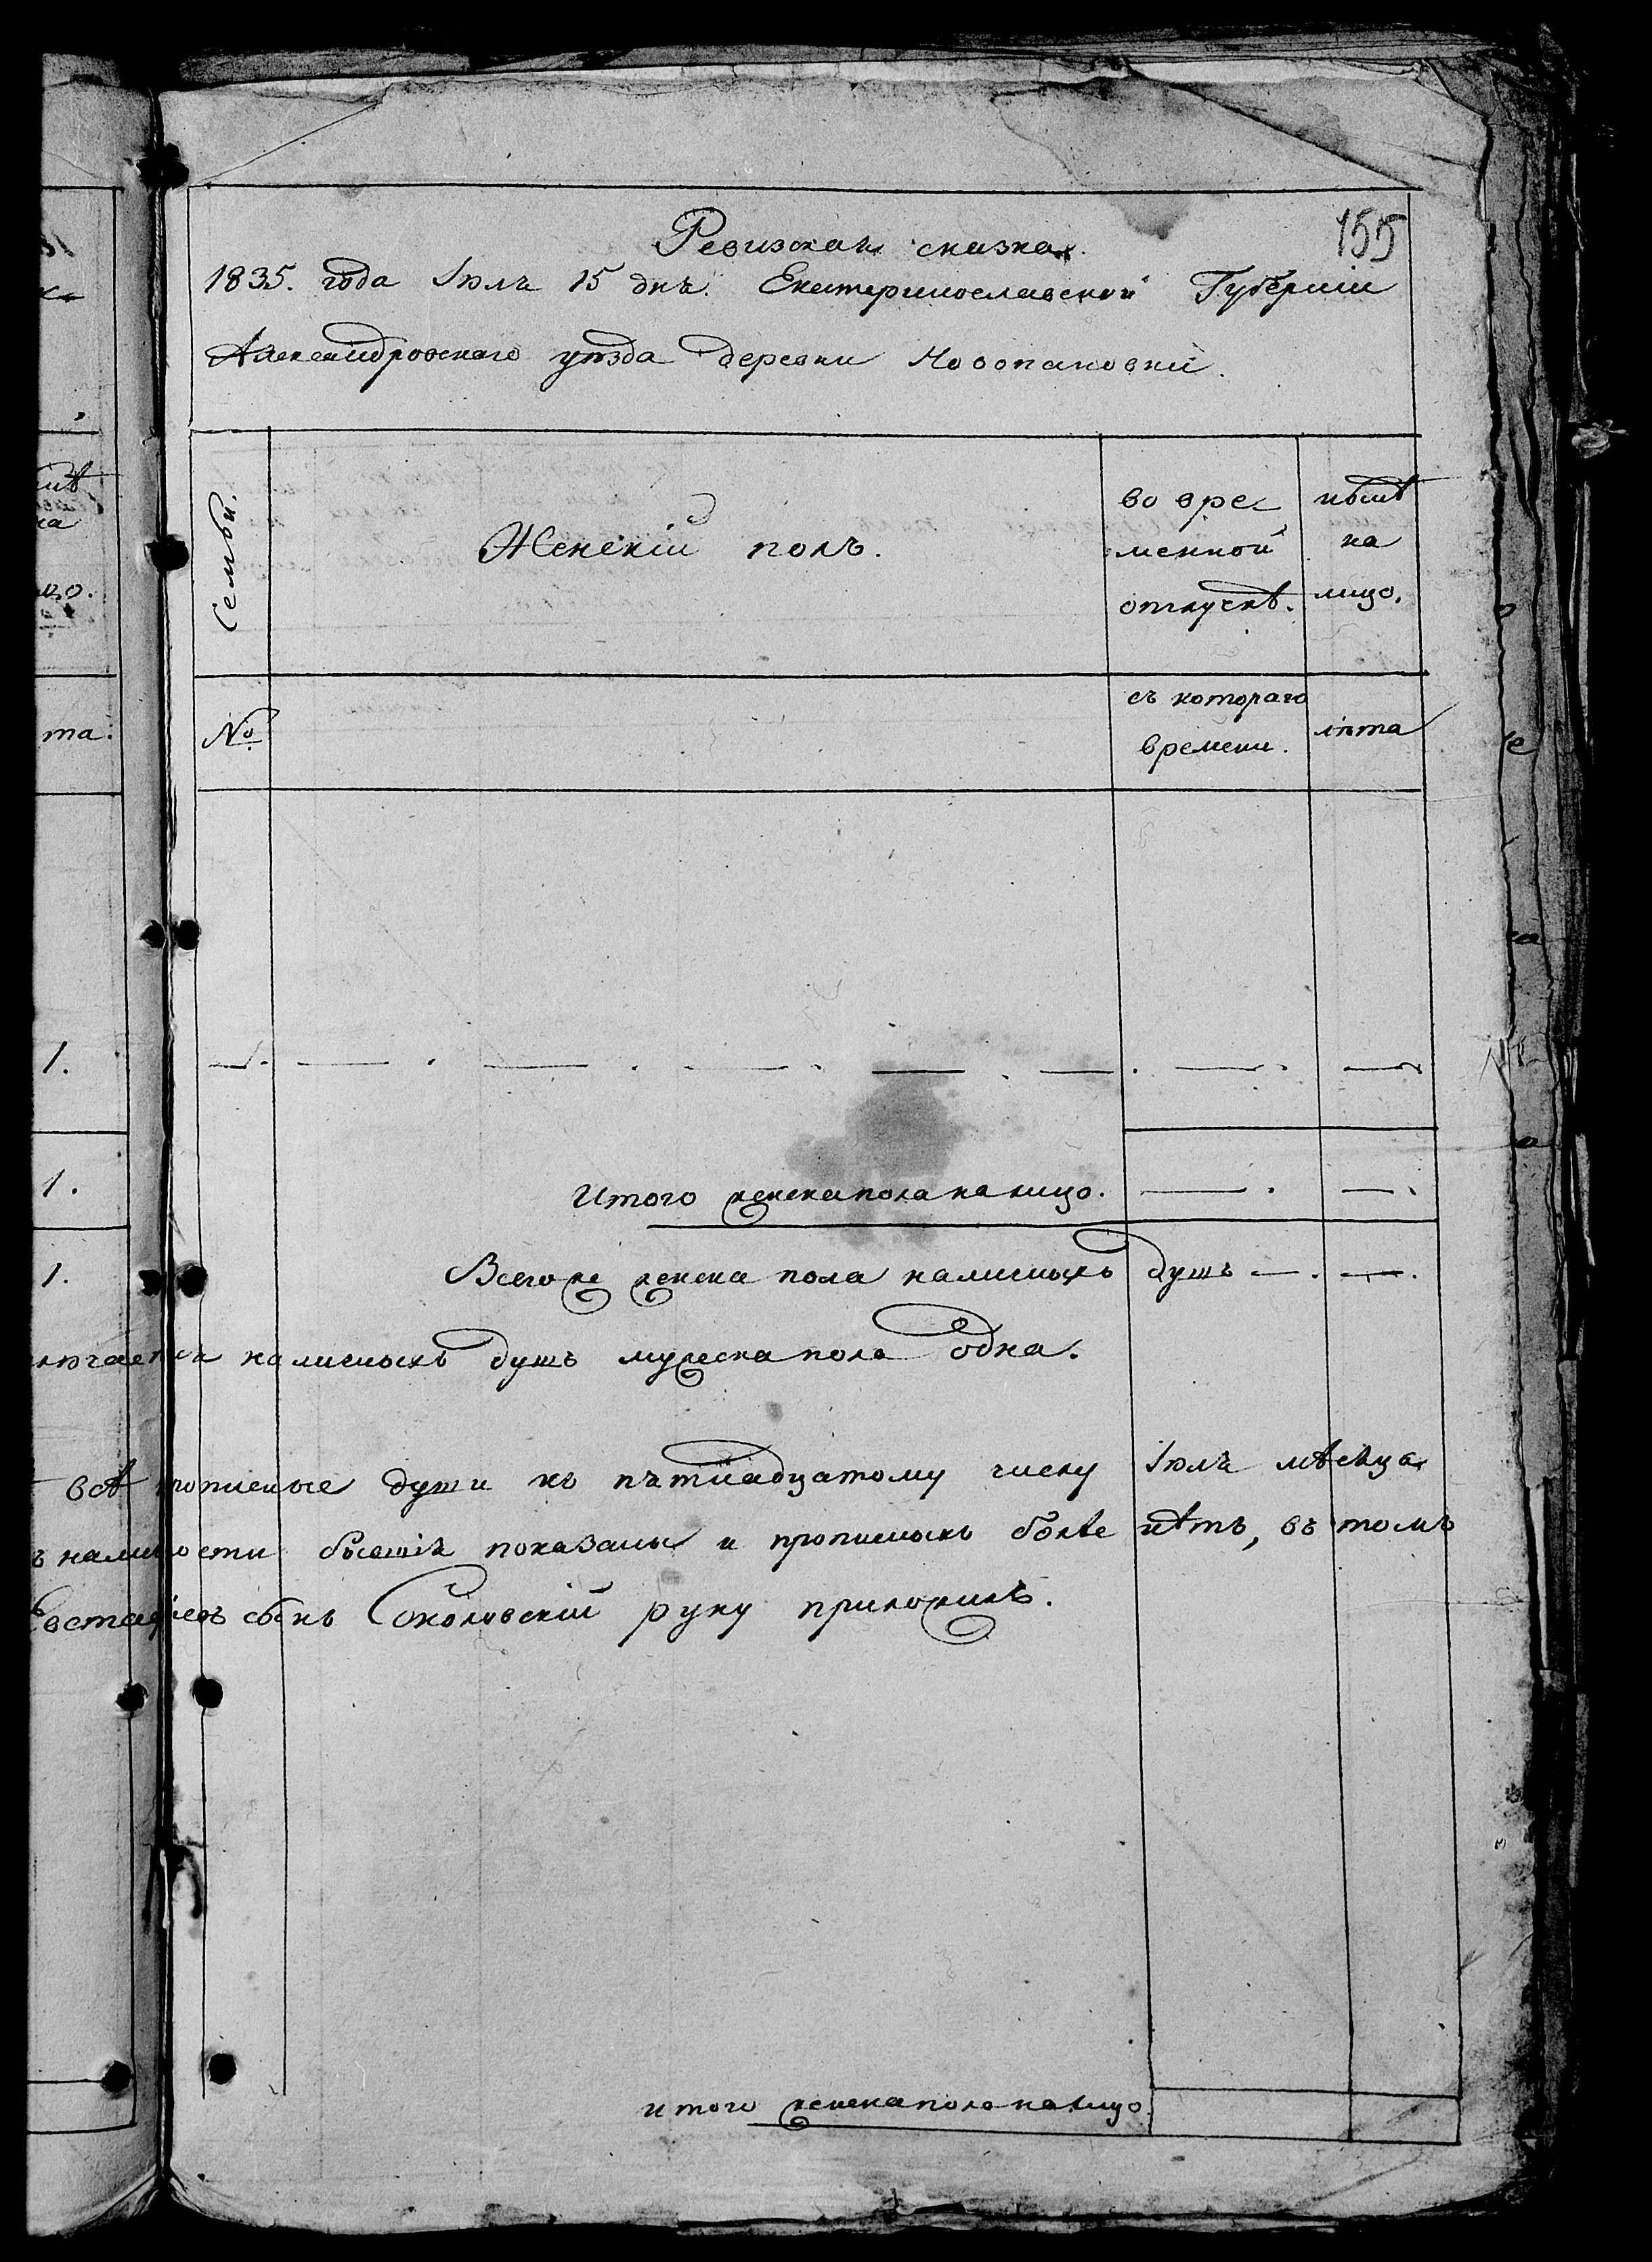 155
Ревизская сказка.
1835. года Іюля 15 дня. Екатеринославской Губерніи
Александровскаго уѣзда деревни Новопановки.
Семьи.
Женскій полъ.
во вре
менной
отлускѣ.
нынѣ
на
лицо.
№
съ котораго
времени.
лѣта
та.
1.
1.
Итого женска пола на лицо.
1.
Всего же женска пола наличныхъ душъ
ключается наличныхъ душъ мужеска пола одна.
всѣ прописные души къ пятнадцатому числу Іюля мѣсяца
въ наличности бывшія показаны и прописныхъ болѣе нѣтъ, въ томъ
Евстафіевъ сынъ Соколовскій руку приложилъ.
итого женска пола на лицо